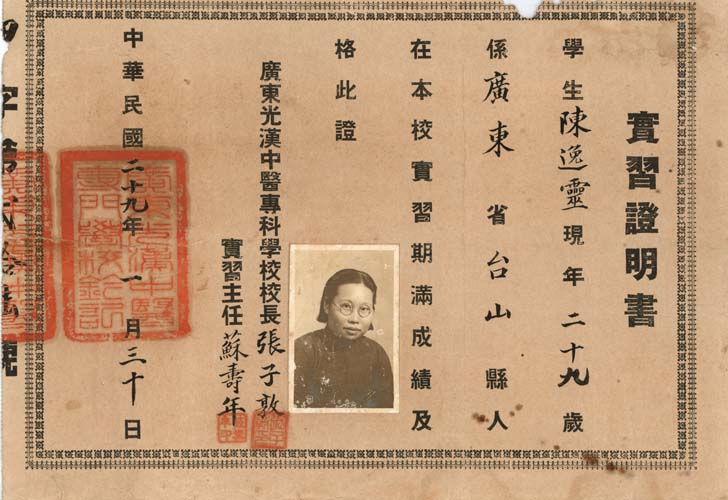 實習證明書
學生陳逸靈現年二十九歲
係廣東省台山縣人
在本校實習期滿成績及
格此證
廣東光漢中醫專科學校校長張子敦
實習主任蘇壽年
中華民國二十九年一月三十日
廣東光漢中醫
專門學校鈐記